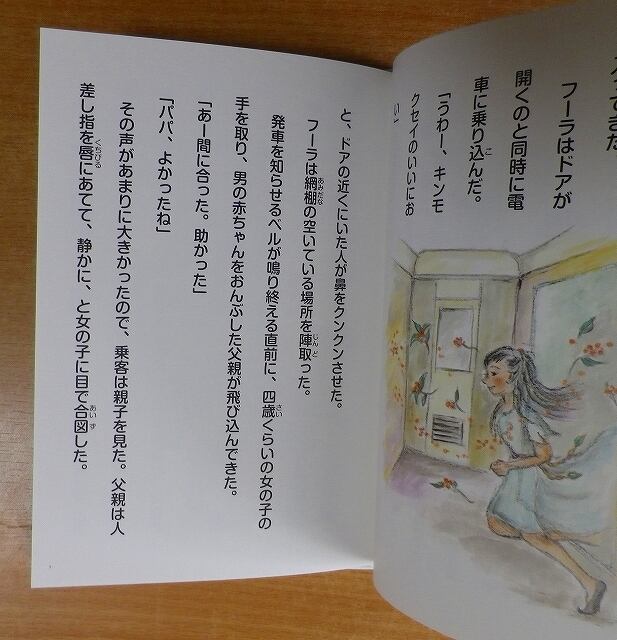 ってきた
フーラはドアが
開くのと同時に電
車に乗り込んだ。
「うわー、キンモ
クセイのいいにお
い」
と、ドアの近くにいた人が鼻をクンクンさせた。
フーラは網棚の空いている場所を陣取った。
発車を知らせるベルが鳴り終える直前に、四歳くらいの女の子の
手を取り、男の赤ちゃんをおんぶした父親が飛び込んできた。
「あー間に合った。助かった」
「パパ、よかったね」
その声があまりに大きかったので、乗客は親子を見た。父親は人
差し指を唇にあてて、静かに、と女の子に目で合図した。